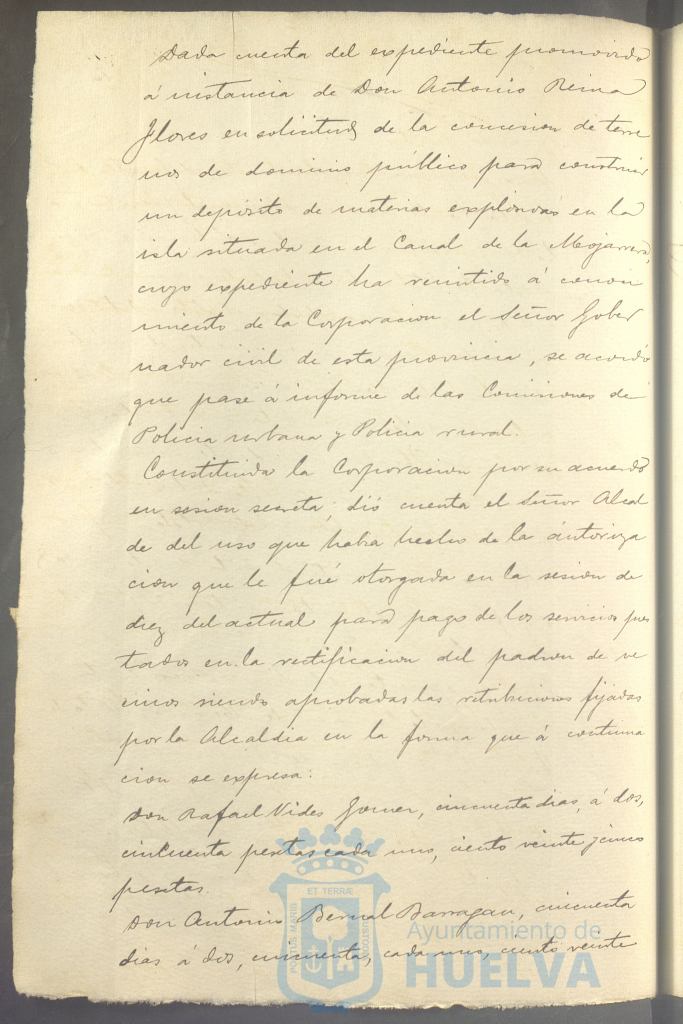 Dada cuenta del expediente promovido
á instancia de Don Antonio Reina
Flores en solicitud de la concesion de terre
nos de dominio público para construir
un depósito de materias explosivas en la
isla situada en el Canal de la Mojarrera,
cuyo expediente ha remitido á conoci
miento de la Corporacion el Señor Gober
nador civil de esta provincia, se acordó
que pase á informe de las Comisiones de
Policia urbana y Policia rural.
Constituida la Corporacion por su acuerdo
en sesion secreta, dió cuenta el Señor Alcal
de del uso que habia hecho de la autoriza
cion que le fué otorgada en la sesion de
diez del actual para pago de los servicios pres
tados en la rectificacion del padron de ve
cinos siendo aprobadas las retribuciones fijadas
por la Alcaldia en la forma que á continua
cion se expresa:
Don Rafael Vides Gomez, cincuenta dias, á dos,
cincuenta pesetas cada uno, ciento veinte y cinco
pesetas.
Don Antonio Bernal Barragan, cincuenta
dias á dos, cincuenta, cada uno, ciento veinte
ET TERRÆ
PORTUS MARIS
CUSTODIA
Ayuntamiento de
HUELVA